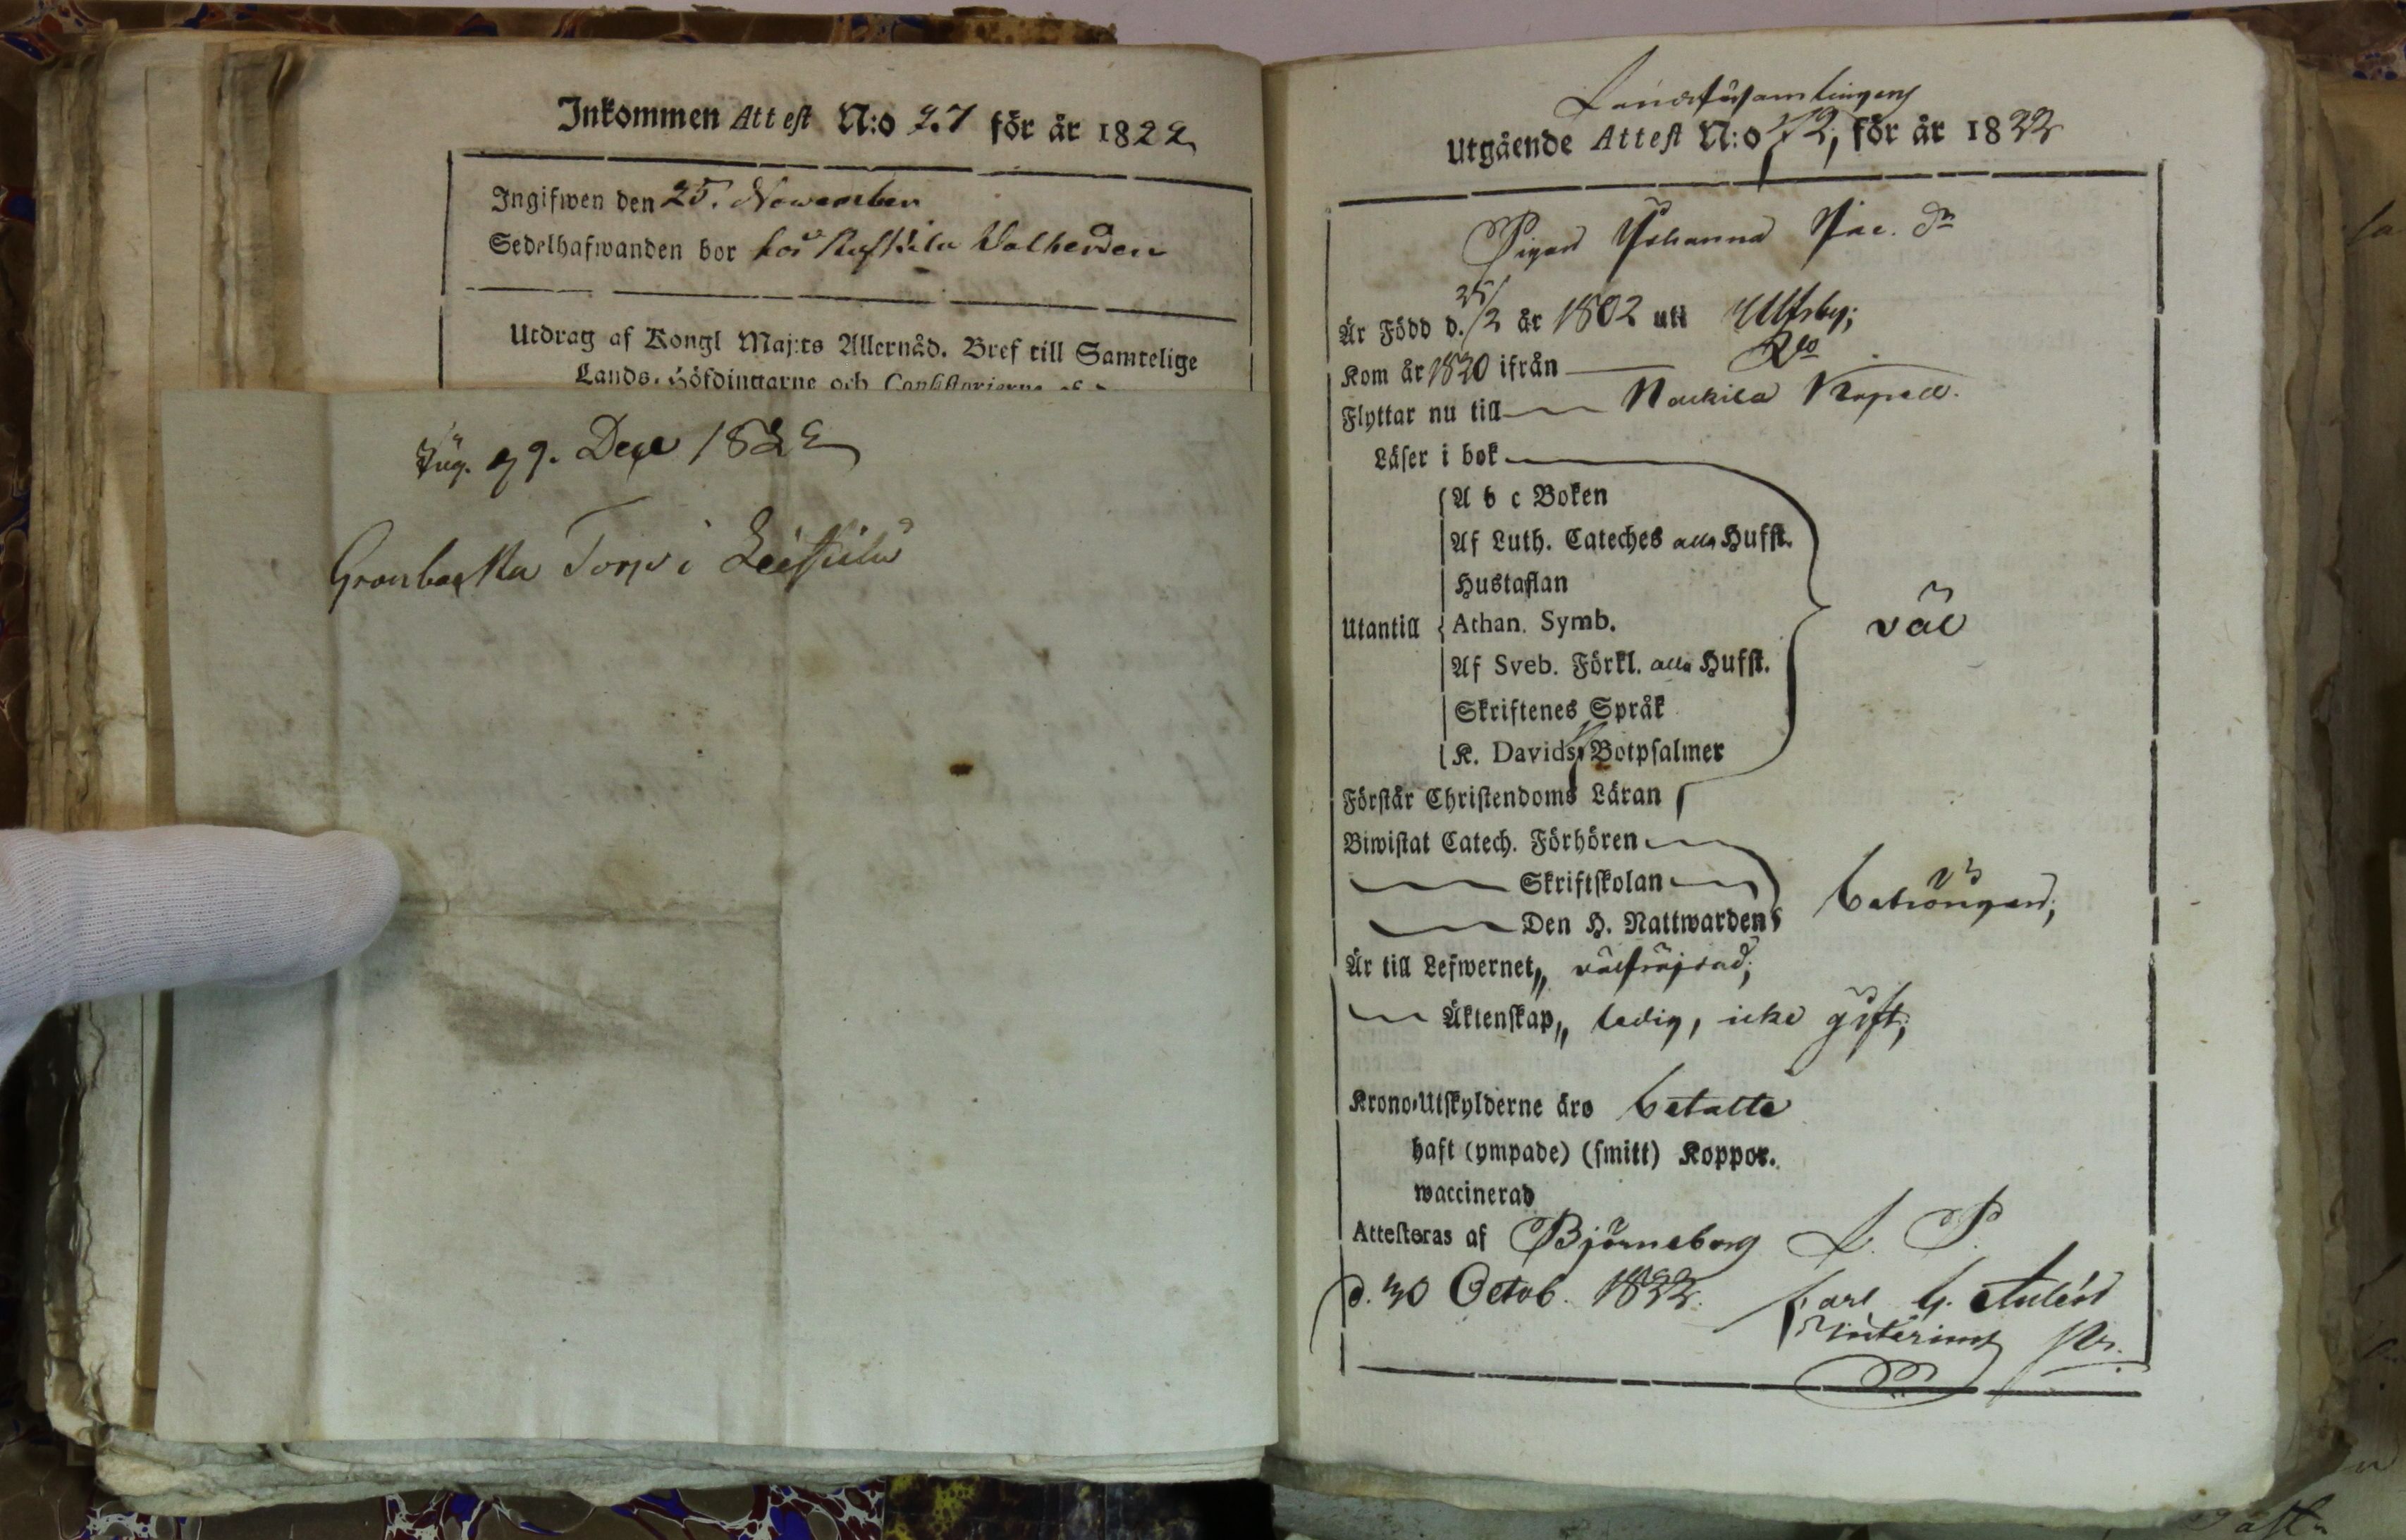 Inkommen Attest N:o 27 för år 1822
Ingifwen den 25. November
Sedelhafwanden bor hos
Utdrag af Kongl Maj:ts Allernåd. Bref till Samtelige
Lands-Höfdingarne och Consistorierne
Ing. 29. Dece 1822
Granbacka Torp i Leistilä
Landsförsamlingens
Utgående Attest N:o 72, för år 1822
Pigan Johanna Jac. dr
Är Född d. 25/2 år 1802 uti Ulfsby;
Kom år 1820 ifrån Do
Flyttar nu till Nackila Kapell.
Läser i bok
A b c Boken
Af Luth. Cateches alla Hufst.
Hustaflan
Utantill Athan. Symb. väl
Af Sveb. Förkl. alla Hufst.
Skriftenes Språk
K. Davids Botpsalmer
Förstår Christendoms Läran
Biwistat Catech. Förhören
Skriftskolan
Den H. Nattwarden
Är till Lefwernet, välfräjdad;
Äktenskap, ledig, icke gift;
Krono-Utskylderne äro betalte
haft (ympade) (smitt) Koppor.
waccinerad
Attesteras af Björneborg L. P.
d. 30 Octob. 1822. Carl G.